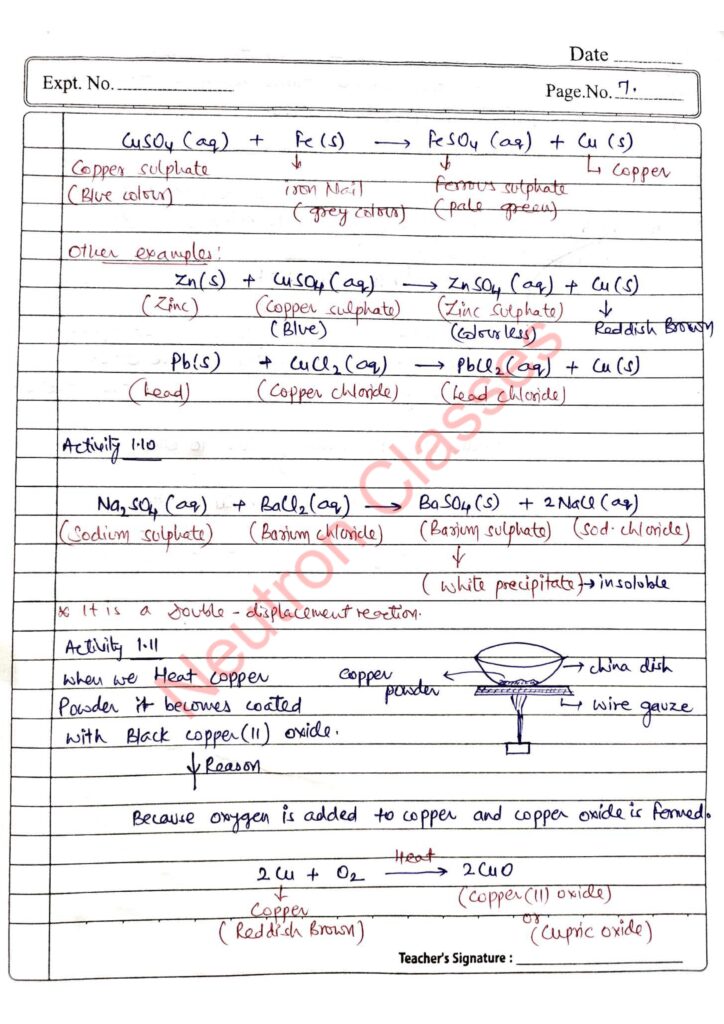 Date
Expt. No.
Page.No. 7.
CuSO4 (aq) + Fe(s) → FeSO4 (aq) + Cu (s)
Copper sulphate ↓ ↓ ↳ copper
(Blue colour) iron Nail Ferrous sulphate
(grey colour) (pale green)
Other examples:
Zn(s) + CuSO4(aq) → ZnSO4 (aq) + Cu(s)
(Zinc) (Copper sulphate) (Zinc sulphate) ↓
(Blue) (colourless) Reddish Brown
Pb(s) + CuCl2(aq) → PbCl2(aq) + Cu(s)
(Lead) (Copper chloride) (Lead chloride)
Activity 1.10
Na2SO4(aq) + BaCl2(aq) → BaSO4(s) + 2NaCl(aq)
(Sodium sulphate) (Barium chloride) (Barium sulphate) (Sod. chloride)
↓
(White precipitate) → insoluble
* It is a Double-displacement reaction.
Activity 1.11
when we Heat copper
Powder it becomes coated
with Black copper(II) oxide.
copper
powder
china dish
wire gauze
↓ Reason
Because oxygen is added to copper and copper oxide is formed.
Heat
2Cu + O2 → 2CuO
↓ (Copper(II) oxide)
Copper or
(Reddish Brown) (Cupric oxide)
Teacher's Signature :
Neutron Classes